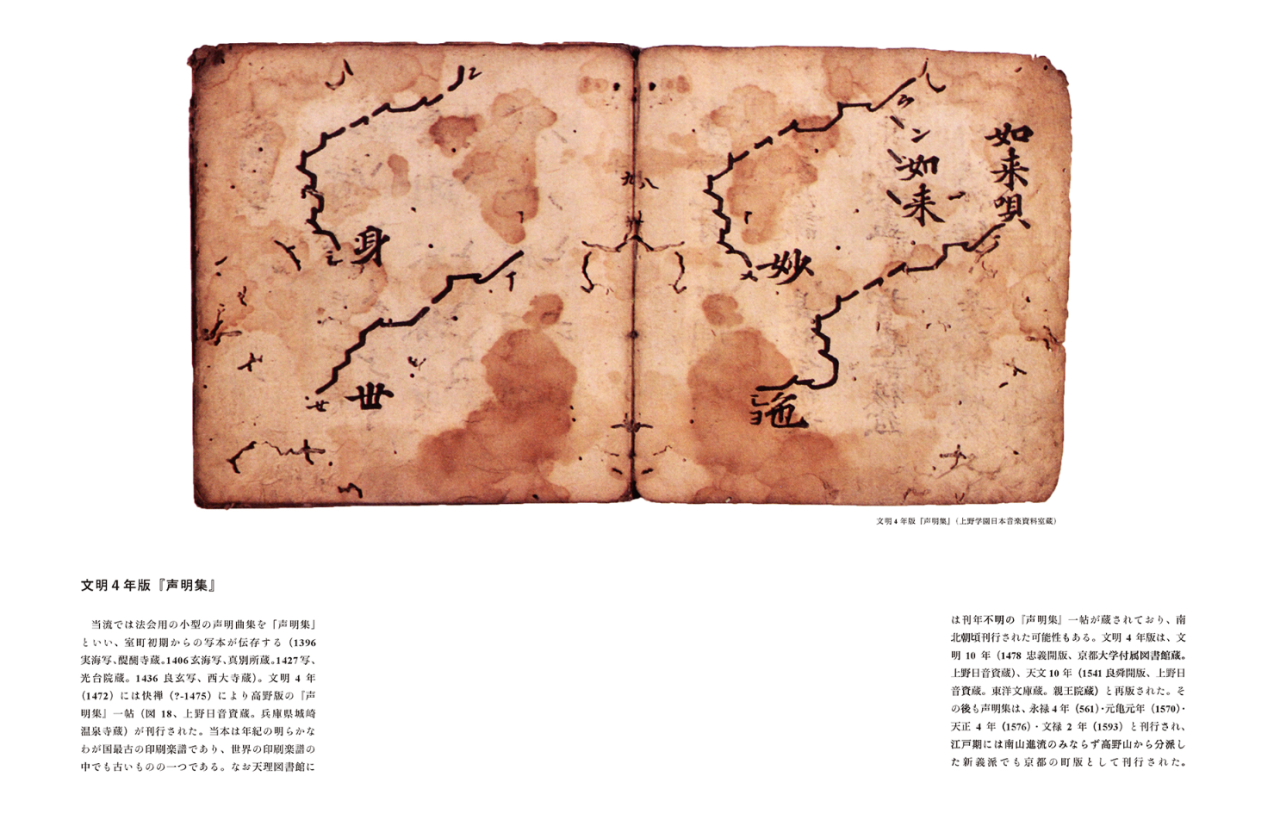 如来唄
如来
妙
世
身
文明 4 年版『声明集』（上野学園日本音楽資料室蔵）
文明 4 年版『声明集』
当流では法会用の小型の声明曲集を「声明集」
といい、室町初期からの写本が伝存する（1396
実海写、醍醐寺蔵。1406 玄海写、真別所蔵。1427 写、
光台院蔵。1436 良玄写、西大寺蔵）。文明 4 年
（1472）には快禅（?-1475）により高野版の『声
明集』一帖（図 18、上野日音資蔵。兵庫県城崎
温泉寺蔵）が刊行された。当本は年紀の明らかな
わが国最古の印刷楽譜であり、世界の印刷楽譜の
中でも古いものの一つである。なお天理図書館に
は刊年不明の『声明集』一帖が蔵されており、南
北朝頃刊行された可能性もある。文明 4 年版は、文
明 10 年（1478 忠義開版、京都大学付属図書館蔵。
上野日音資蔵）、天文 10 年（1541 良舜開版、上野日
音資蔵。東洋文庫蔵。親王院蔵）と再版された。そ
の後も声明集は、永禄 4 年（561）・元亀元年（1570）・
天正 4 年（1576）・文禄 2 年（1593）と刊行され、
江戸期には南山進流のみならず高野山から分派し
た新義派でも京都の町版として刊行された。